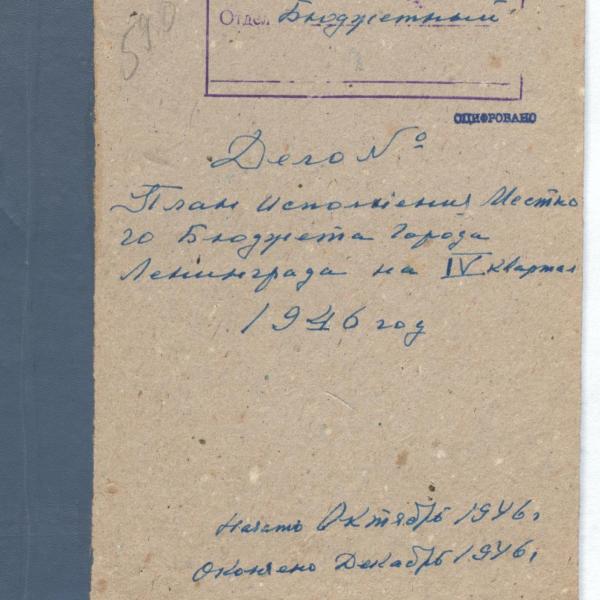 590
Отдел Бюджетный
ОЦИФРОВАНО
Дело №
План исполнения Местно
го Бюджета Города
Ленинграда на IV квартал
1946 год
Начато Октябрь 1946 г
Окончено Декабрь 1946 г.